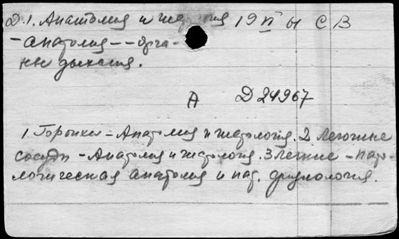 Д.1. Анатомия и 19 VI ы С.В
-анатомия--орга-
ны дыхания.
А Д 24967
1 Бронхи-Анатомия и гистология. 2 Легочные
сосуды-Анатомия и гистология. 3 Легкие-пато-
логическая анатомия и пат. физиология.